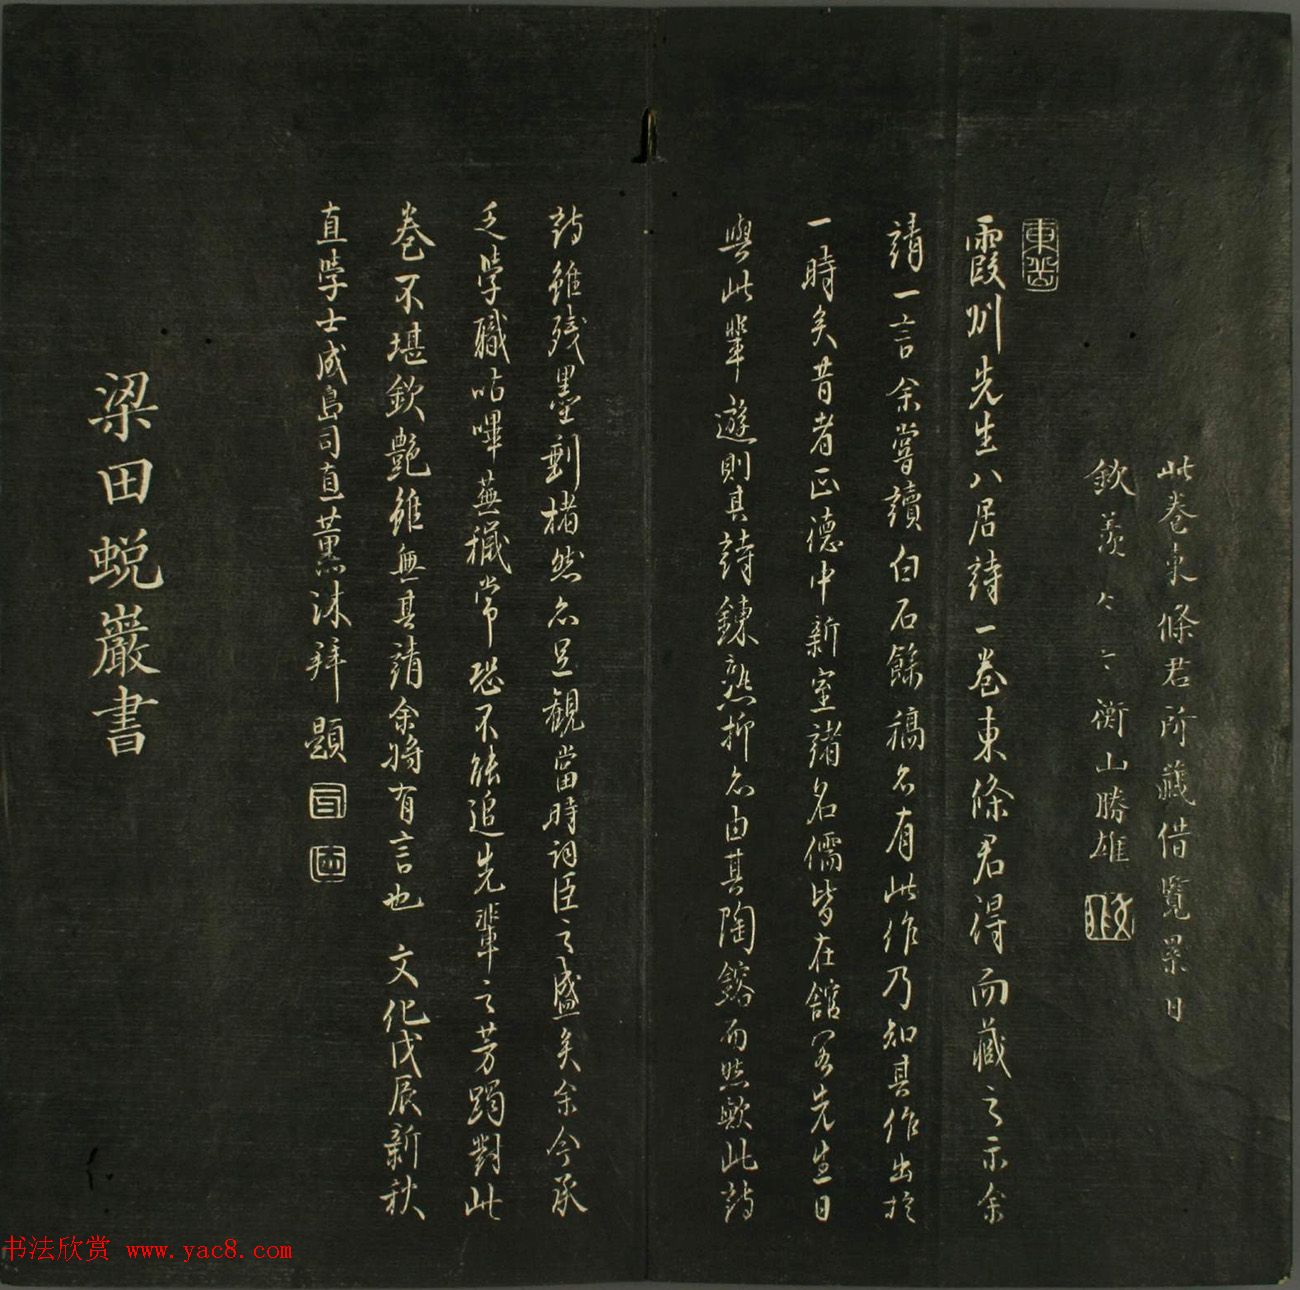 此卷東條君所藏借覽累日
欽羨々々衡山勝雄
霞洲先生八居詩一卷東條君得而藏之示余
請一言余嘗讀白石餘稿名有此作乃知其作出於
一時矣昔者正德中新室諸名儒皆在館若先生日
與此輩遊則其詩鍊熟抑亦由其陶鎔而然歟此詩
雖殘墨剩楮然亦足觀當時詞臣之盛矣余今承
乏學職呫嗶蕪穢常恐不能追先輩之芳躅對此
卷不堪欽艷雖無其請余將有言也 文化戊辰新秋
直學士成島司直薰沐拜題
梁田蛻巖書
书法欣赏 www.yac8.com